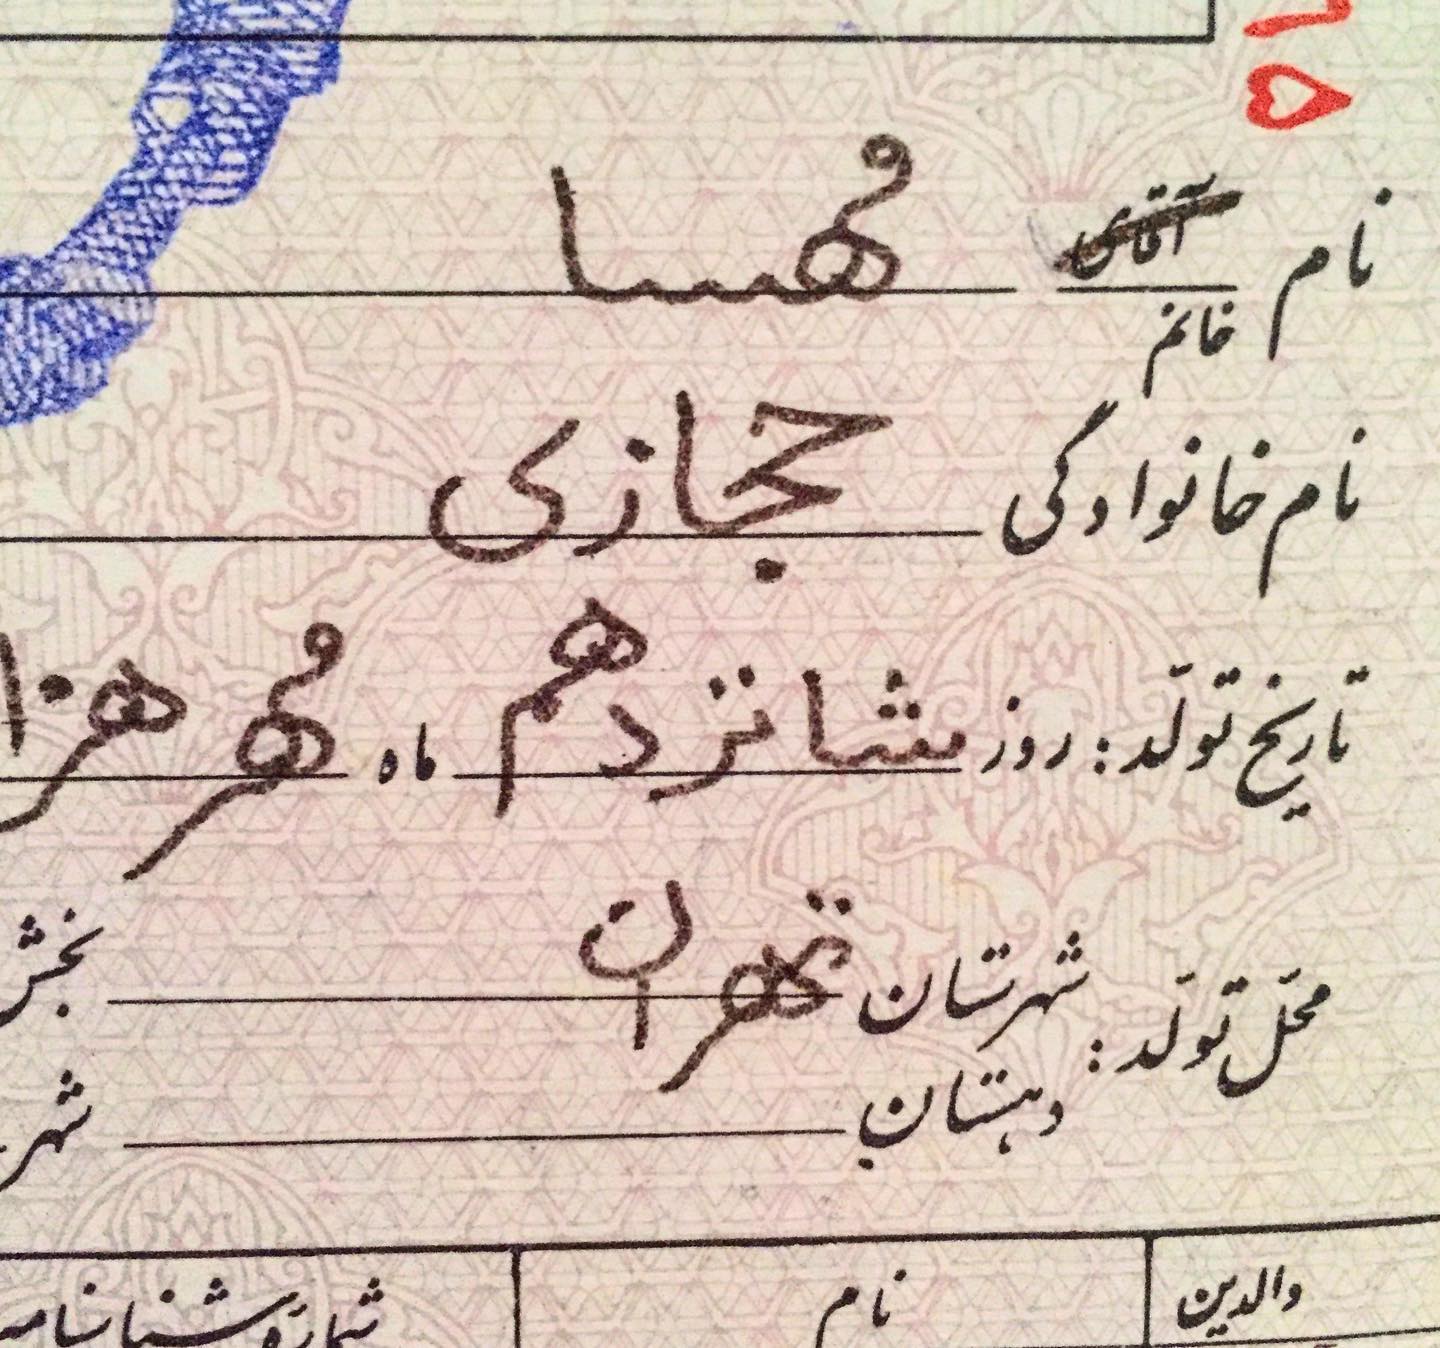 ۵
نام آقای مهسا
خانم
نام خانوادگی حجازی
تاریخ تولّد: روز شانزدهم ماه مهر
محلّ تولّد: شهرستان تهران بخش
دهستان شهر
والدین نام شماره شناسنامه